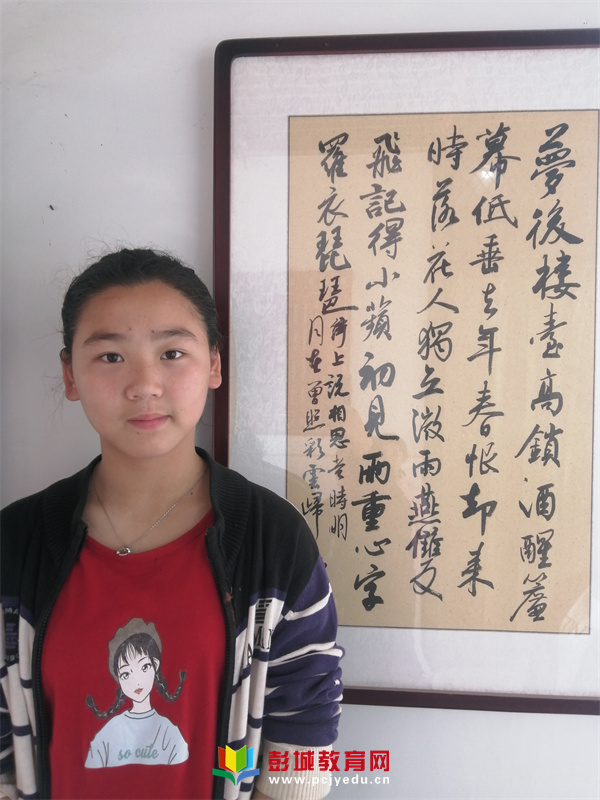 夢後樓臺高鎖酒醒簾
幕低垂去年春恨却来
時落花人獨立微雨燕雙
飛記得小蘋初見兩重心字
羅衣琵琶弦上説相思當時明
月在曾照彩雲歸
so cute
彭城教育网
www.pcjyedu.cn